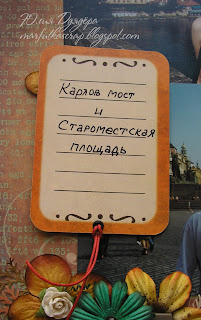 Юлия Дридера
marfutkascrap.blogspot.com
Карлов мост
и
Староместская
площадь